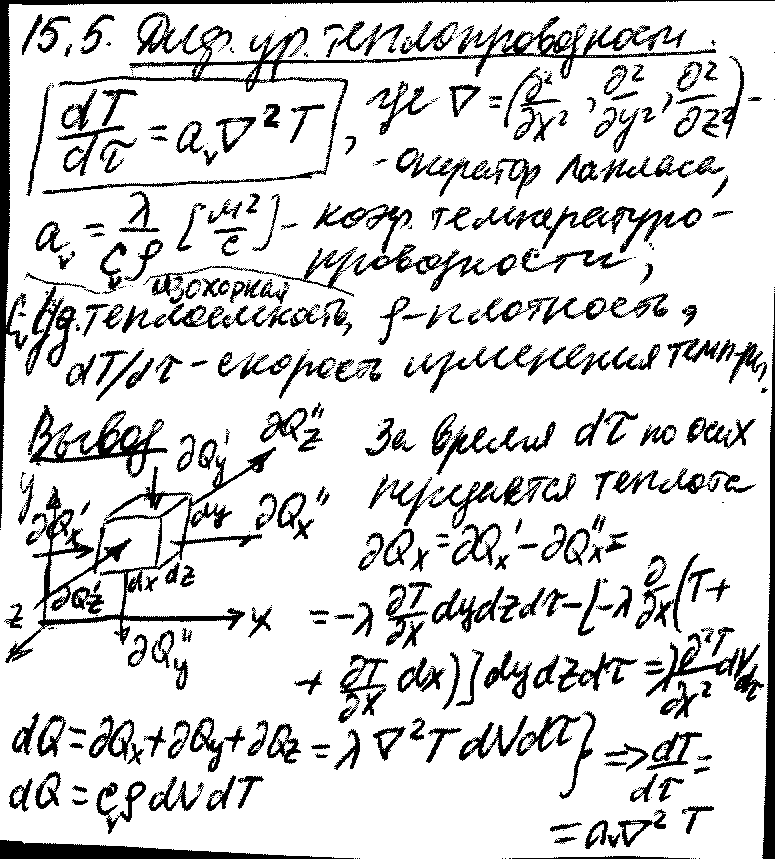 15.5. Диф. ур. теплопроводности.
dT/dτ = aᵥ∇²T, где ∇ = (∂²/∂x², ∂²/∂y², ∂²/∂z²) -
- оператор Лапласа,
aᵥ = λ/(cᵥρ) [м²/с] - коэф. температуро-
проводности,
изохорная
cᵥ - уд. теплоемкость, ρ - плотность,
dT/dτ - скорость изменения темп-ры.
Вывод
За время dτ по осях
передается теплота
y
∂Qy'
∂Qz''
∂Qx'
dy
∂Qx''
∂Qz'
dx dz
z
x
∂Qy''
∂Qx = ∂Qx' - ∂Qx'' =
= -λ ∂T/∂x dydzdτ - [-λ ∂/∂x (T +
+ ∂T/∂x dx)] dydzdτ = λ ∂²T/∂x² dVdτ
dQ = ∂Qx + ∂Qy + ∂Qz = λ∇²T dVdτ } => dT/dτ =
dQ = cᵥρdVdT
= aᵥ∇²T